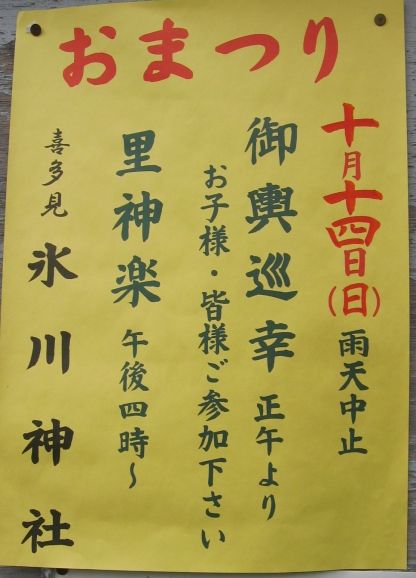 おまつり
十月十四日(日) 雨天中止
御輿巡幸 正午より
お子様・皆様ご参加下さい
里神楽 午後四時〜
喜多見 氷川神社